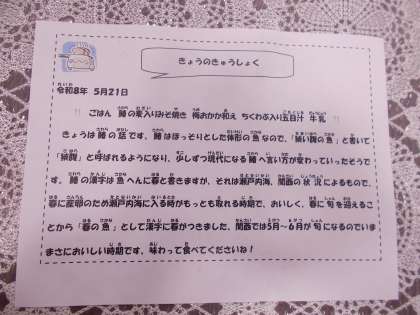 きょうのきゅうしょく
令和8年 5月21日
ごはん 鰆の東入りみそ焼き 梅おかか和え ちくわぶ入り五目汁 牛乳
きょうは鰆の話です。鰆はほっそりとした体形の魚なので、「狭い腹の魚」と書いて
「狭腹」と呼ばれるようになり、少しずつ現代になる鰆へ言い方が変わっていったそうで
す。鰆の漢字は魚へんに春と書きますが、それは瀬戸内海、関西の状況によるもので、
春に産卵のため瀬戸内海に入る時がもっとも取れる時期で、おいしく、春に旬を迎えるこ
とから「春の魚」として漢字に春がつきました。関西では5月～6月が旬になるのでいま
まさにおいしい時期です。味わって食べてくださいね！